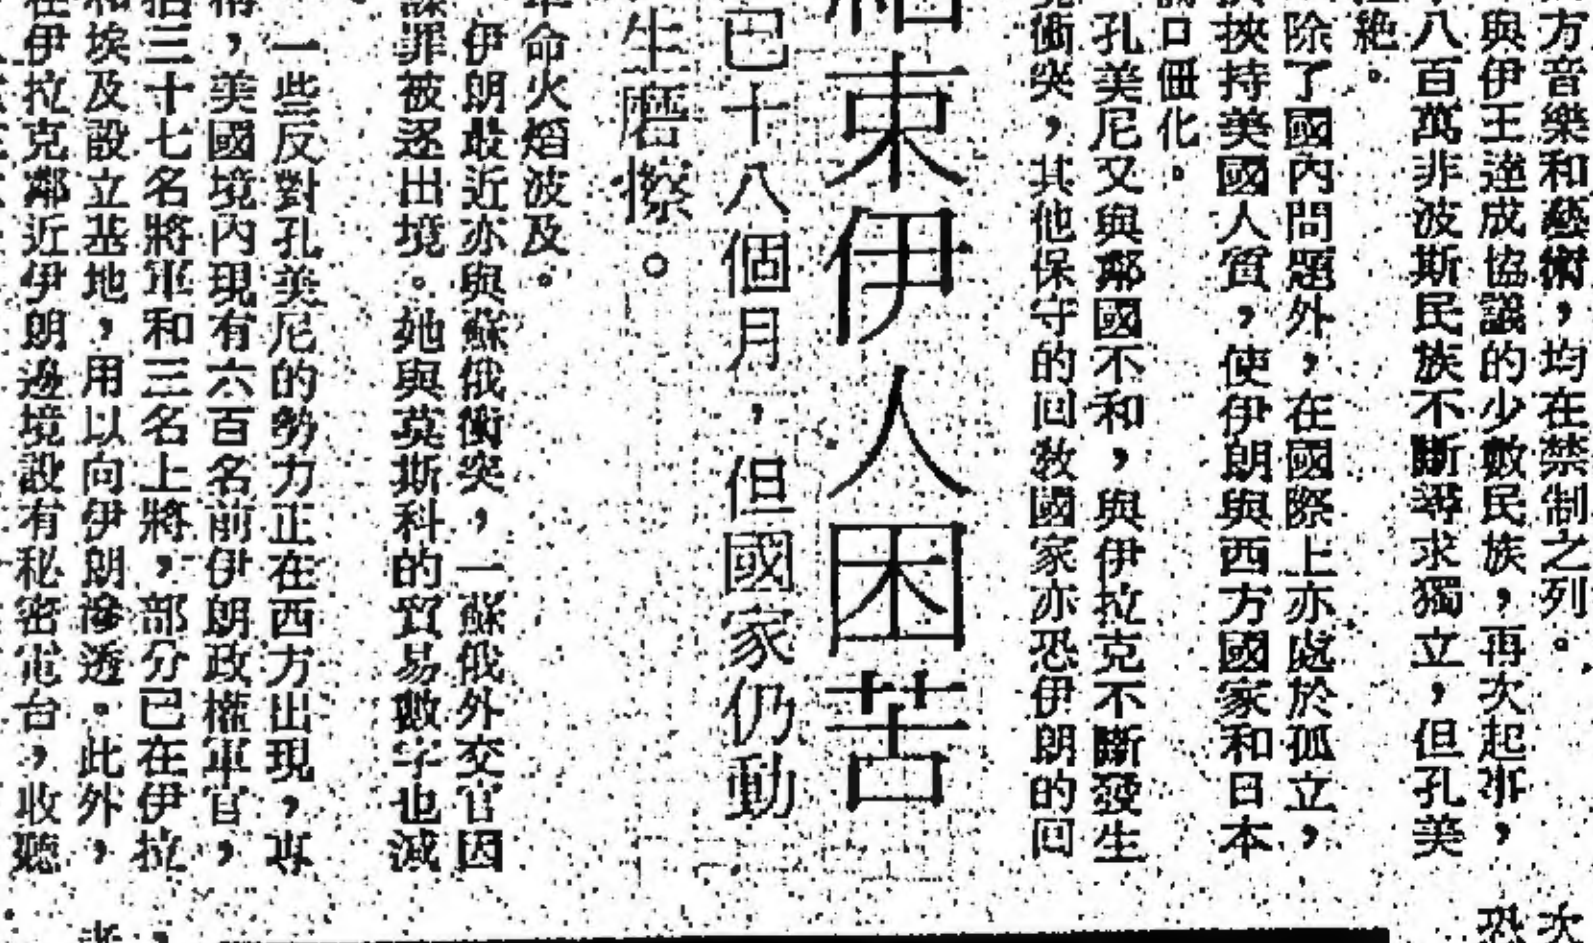 方音樂和藝術，均在禁制之列。
與伊王達成協議的少數民族，再次起事，
八百萬非波斯民族不斷尋求獨立，但孔美
絕。
除了國內問題外，在國際上亦處於孤立，
挾持美國人質，使伊朗與西方國家和日本
口僵化。
孔美尼又與鄰國不和，與伊拉克不斷發生
衝突，其他保守的回教國家亦恐伊朗的回
束伊人困苦
已十八個月，但國家仍動
生磨擦。
命火焰波及。
伊朗最近亦與蘇俄衝突，一蘇俄外交官因
罪被逐出境。她與莫斯科的貿易數字也減
一些反對孔美尼的勢力正在西方出現，專
，美國境內現有六百名前伊朗政權軍官，
三十七名將軍和三名上將，部分已在伊拉
埃及設立基地，用以向伊朗滲透。此外，
在伊拉克鄰近伊朗邊境設有秘密電台，收聽
次
恐